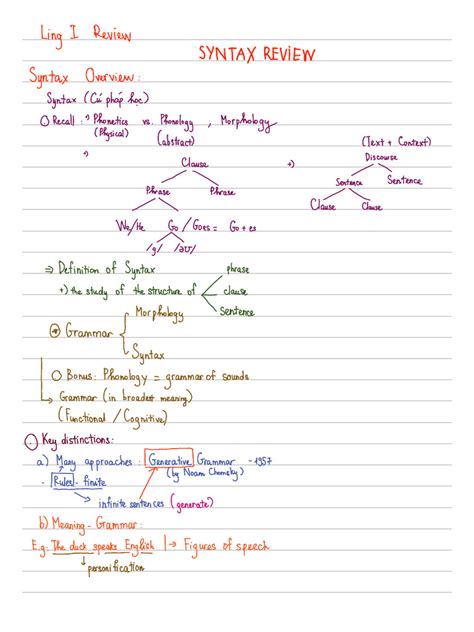 Ling I Review
SYNTAX REVIEW
Syntax Overview:
Syntax (Cú pháp học)
Recall: +) Phonetics vs. Phonology, Morphology
(Physical) (abstract)
(Text + Context)
+) Clause +) Discourse
Phrase Phrase Sentence Sentence
Clause Clause
We/He Go / Goes = Go + es
/g/ /əʊ/
⇒ Definition of Syntax phrase
+) the study of the structure of clause
Sentence
Morphology
⊛ Grammar
Syntax
Bonus: Phonology = grammar of sounds
↳ Grammar (in broadest meaning)
(Functional / Cognitive)
Key distinctions:
a) Many approaches: Generative Grammar - 1957
(by Noam Chomsky)
- Rules - finite
infinite sentences (generate)
b) Meaning - Grammar:
E.g: The duck speaks English |→ Figures of speech
personification